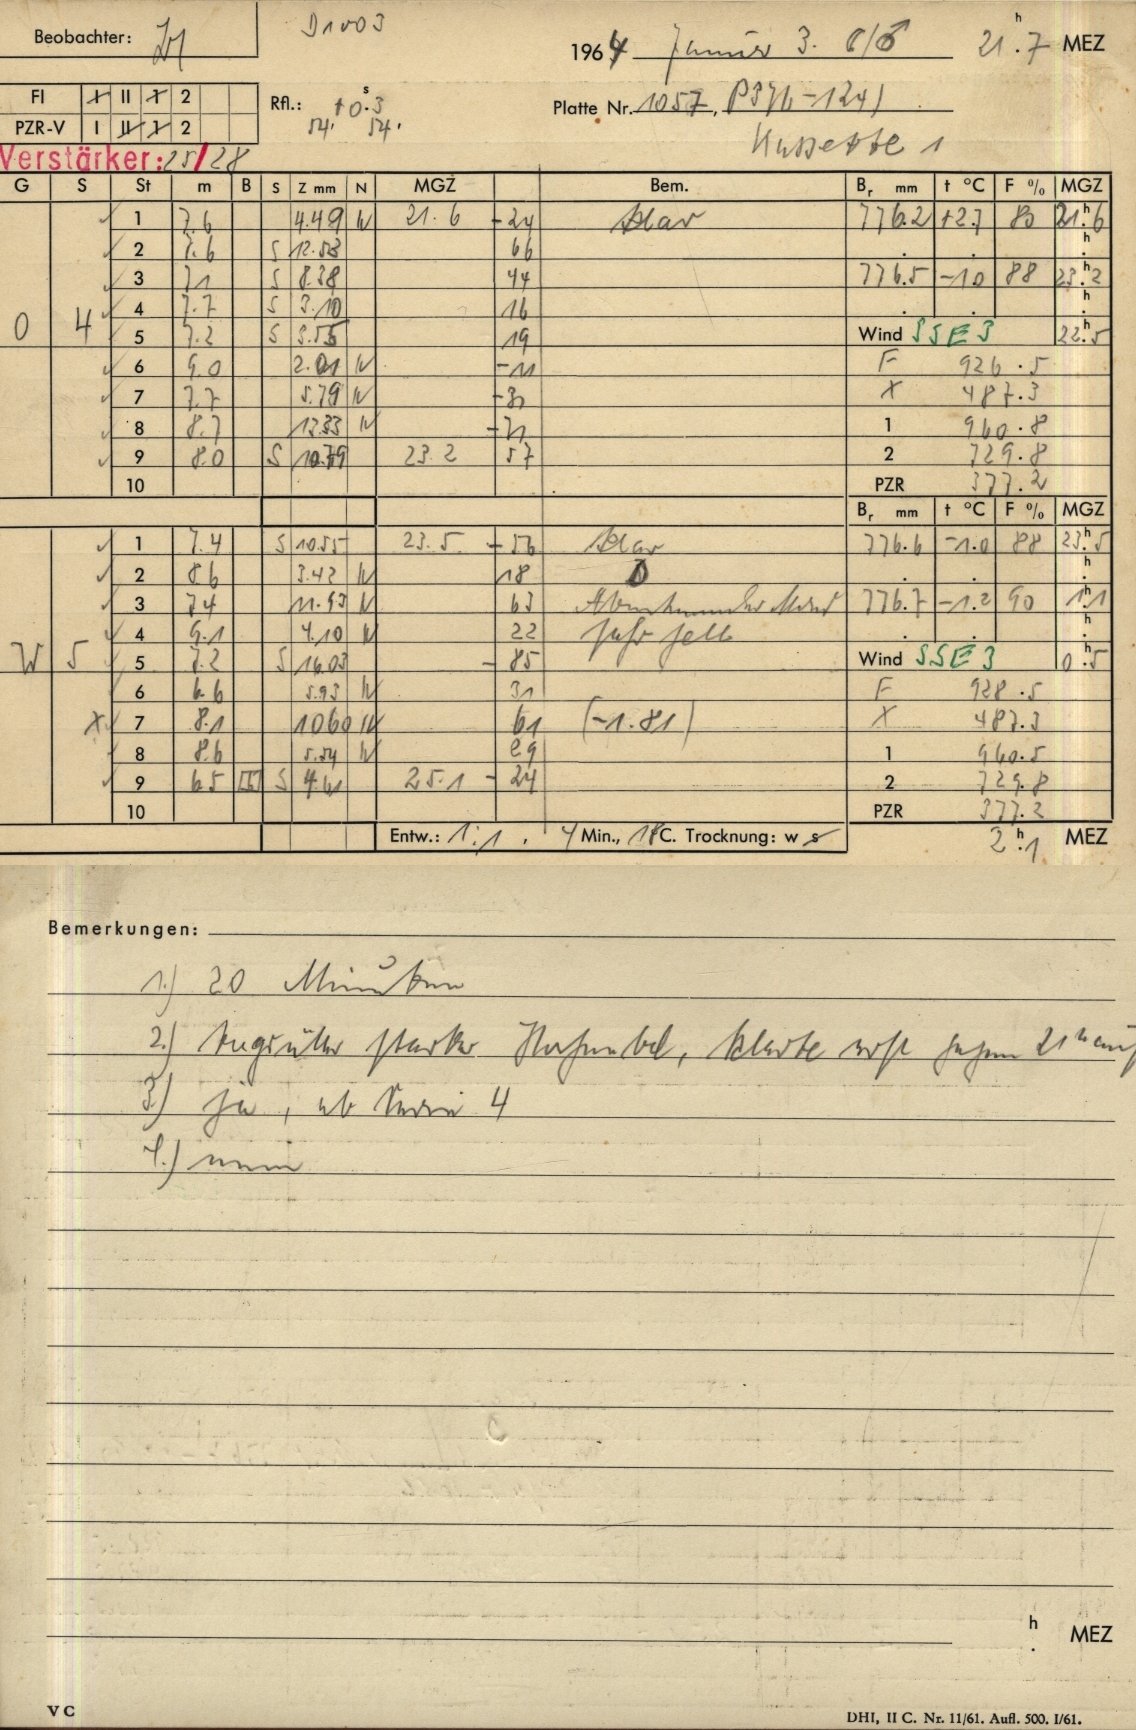 Beobachter:
D1003
1964 Januar 3. 21.h7 MEZ
FI I II 1 2
PZR-V I II 1 2
Rfl.: +0.s3
54. 54.
Platte Nr. 1057, P37/6-1241
Kassette 1
Verstärker: 25/28
G S St m B S Z mm N MGZ Bem. Br mm t °C F % MGZ
O 4
1 7.6 4.49 N 21.6 -24 klar 776.2 +2.7 80 21.h6
2 7.6 S 12.53 66
3 7.1 S 8.38 44 776.5 -1.0 88 23.h2
4 7.7 S 3.10 16
5 7.2 S 3.55 19 Wind SSE 3 22.h5
6 9.0 2.01 N -11 F 926.5
7 7.7 5.79 N -31 X 487.3
8 8.7 13.33 N -71 1 960.8
9 8.0 S 10.79 23.2 57 2 729.8
10 PZR 377.2
Br mm t °C F % MGZ
W 5
1 7.4 S 10.55 23.5 -56 klar 776.6 -1.0 88 23.h5
2 8.6 3.42 N 18
3 7.4 11.93 N 63 776.7 -1.2 90 1.h1
4 9.1 4.10 N 22 sehr hell
5 7.2 S 16.03 -85 Wind SSE 3 0.h5
6 6.6 5.93 N 31 F 928.5
X 7 8.1 10.60 N 61 (-1.81) X 487.3
8 8.6 5.54 N 29 1 960.5
9 6.5 S 4.61 25.1 -24 2 729.8
10 PZR 377.2
Entw.: 1:1. 4 Min., 18°C. Trocknung: w s 2.h1 MEZ
Bemerkungen:
1.) 20 Minuten
2.) tagsüber starker Hochnebel, klarte erst gegen 21h auf
3.) ja, ab Serie 4
4.) nein
h. MEZ
V C
DHI, II C. Nr. 11/61. Aufl. 500. I/61.